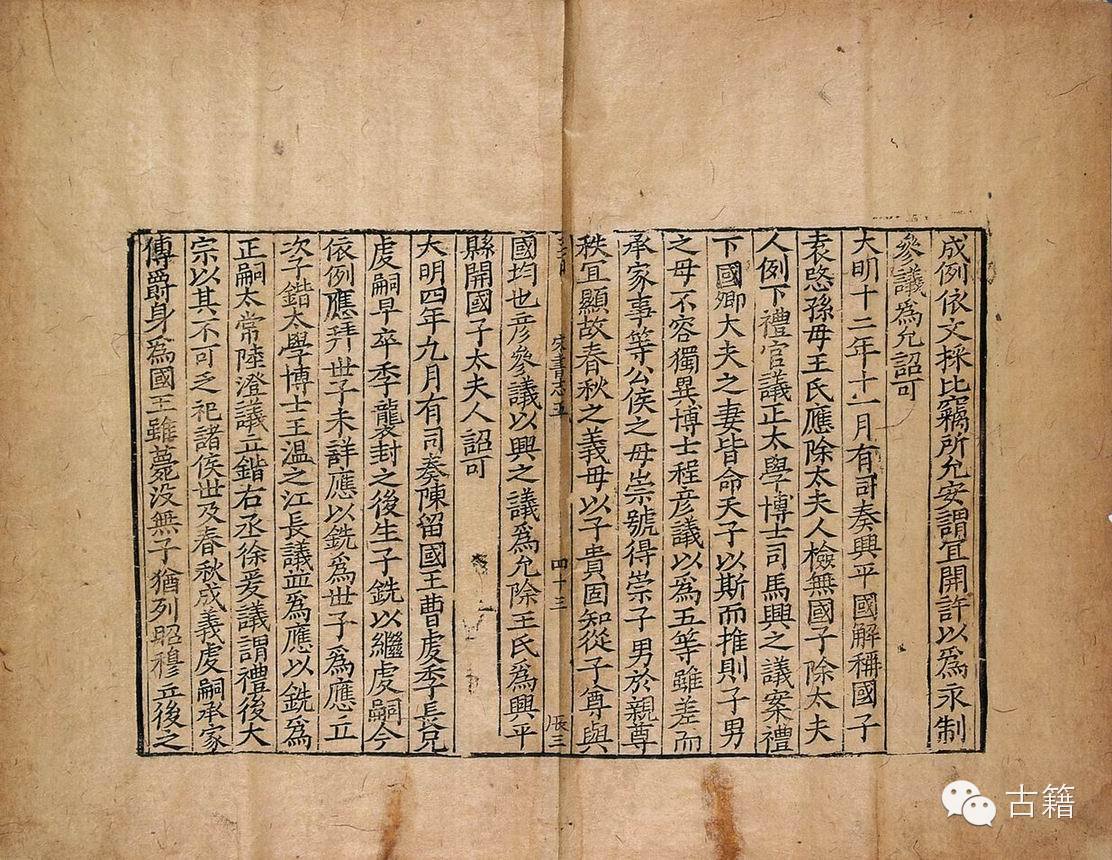 成例依文採比竊所允安謂宜開許以爲永制
參議爲允詔可
大明十二年十一月有司奏興平國解稱國子
袁愍孫母王氏應除太夫人檢無國子除太夫
人例下禮官議正太學博士司馬興之議案禮
下國卿大夫之妻皆命天子以斯而推則子男
之母不容獨異博士程彦議以爲五等雖差而
承家事等公侯之母崇號得崇子男於親尊
秩宜顯故春秋之義母以子貴固知從子尊與
國均也彦參議以興之議爲允除王氏爲興平
縣開國子太夫人詔可
宋書志五
四十三
辰三
大明四年九月有司奏陳留國王曹虔季長兄
虔嗣早卒季襲封之後生子銑以繼虔嗣今
依例應拜世子未詳應以銑爲世子爲應立
次子鍇太學博士王溫之江長議並爲應以銑爲
正嗣太常陸澄議立鍇右丞徐爰議謂禮後大
宗以其不可乏祀諸侯世及春秋成義虔嗣承家
傳爵身爲國王雖薨没無子猶列昭穆立後之
古籍